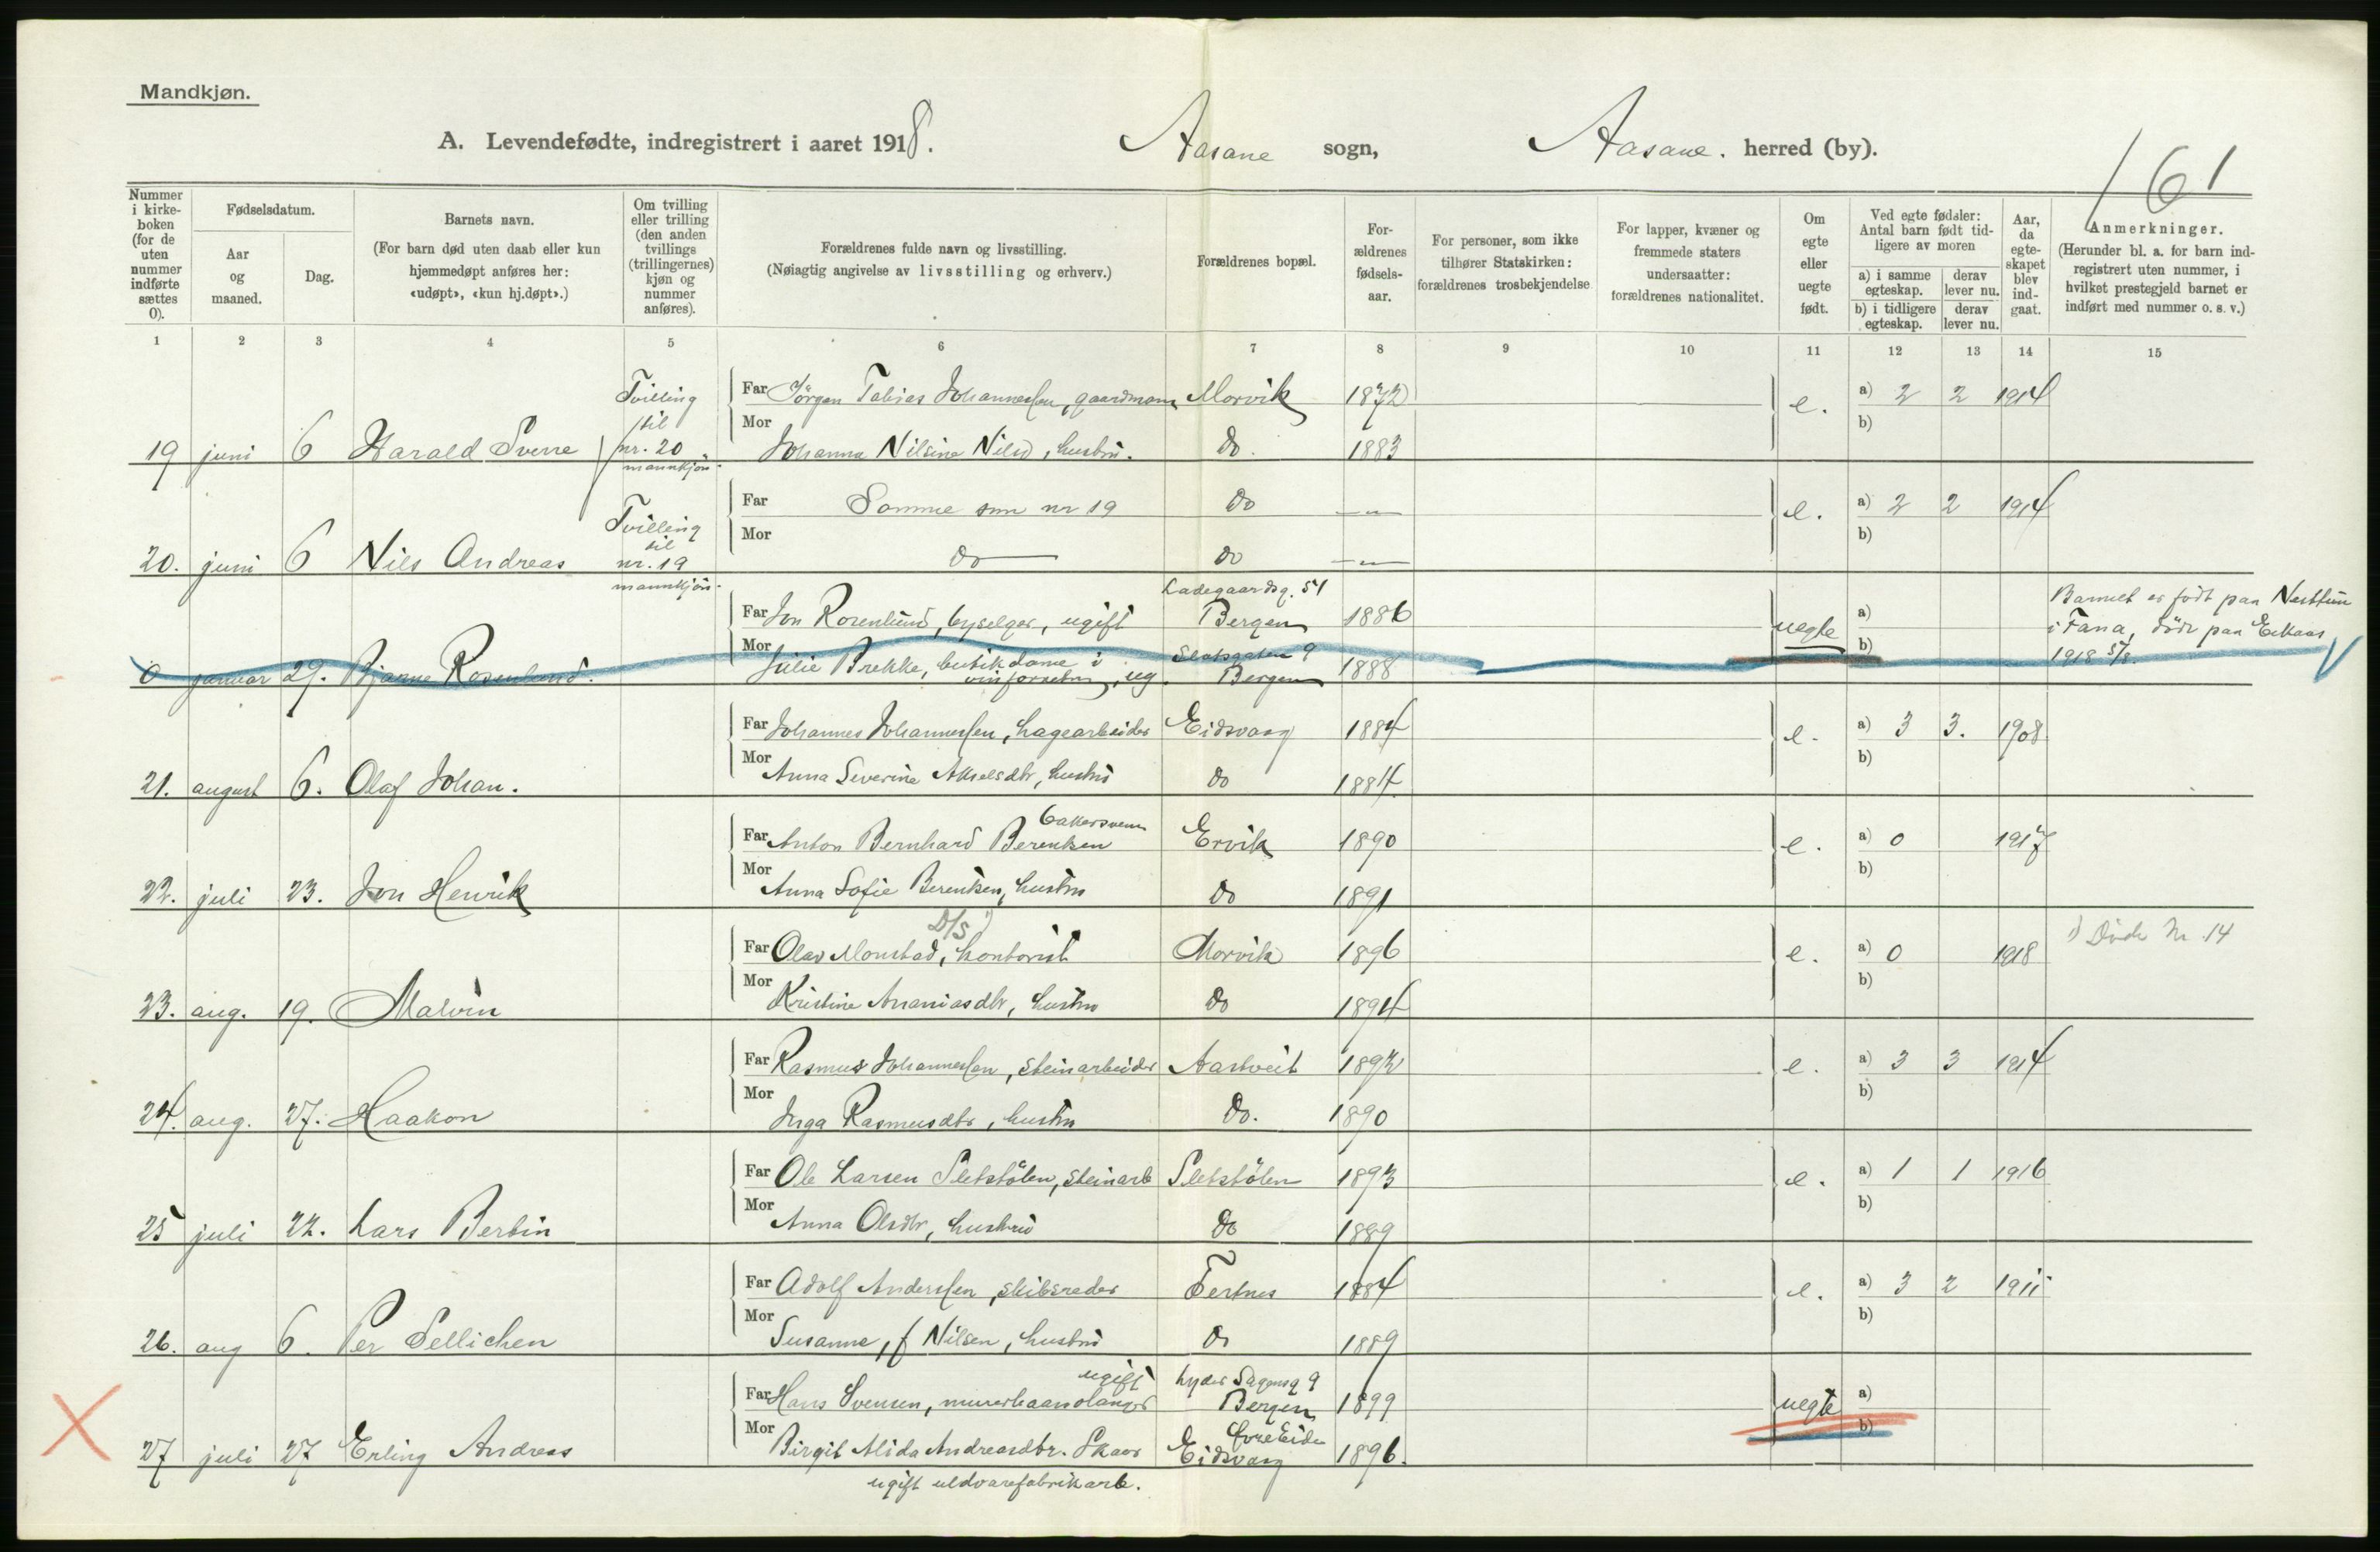 Mandkjøn.
A. Levendefødte, indregistrert i aaret 1918. Aasane sogn, Aasane. herred (by).
161
Nummer i kirke-boken (for de uten nummer indførte sættes 0).
Fødselsdatum.
Aar og maaned.
Dag.
Barnets navn.
(For barn død uten daab eller kun hjemmedøpt anføres her: «udøpt», «kun hj.døpt».)
Om tvilling eller trilling (den anden tvillings (trillingernes) kjøn og nummer anføres).
Forældrenes fulde navn og livsstilling.
(Nøiagtig angivelse av livsstilling og erhverv.)
Forældrenes bopæl.
For-ældrenes fødsels-aar.
For personer, som ikke tilhører Statskirken: forældrenes trosbekjendelse
For lapper, kvæner og fremmede staters undersaatter: forældrenes nationalitet.
Om egte eller uegte født.
Ved egte fødsler: Antal barn født tid-ligere av moren
a) i samme egteskap. derav lever nu.
b) i tidligere egteskap. derav lever nu.
Aar, da egte-skapet blev ind-gaat.
Anmerkninger.
(Herunder bl. a. for barn ind-registrert uten nummer, i hvilket prestegjeld barnet er indført med nummer o. s. v.)
1 2 3 4 5 6 7 8 9 10 11 12 13 14 15
Tvilling til nr. 20 mannkjøn.
Far Jörgen Tobias Johannessen, gaardmann Morvik 1872 e. a) 2 2 1914
19 juni 6 Harald Sverre Mor Johanna Nilsine Nilsd, hustru. do. 1883 b)
Tvilling til nr. 19 mannkjøn.
Far Samme som nr 19 do —„— e. a) 2 2 1914
20. juni 6 Nils Andreas Mor do do —„— b)
Ladegaardsg. 51
Far Jon Rosenlund, byselger, ugift Bergen 1886 uegte a)
Barnet er født paa Nesttun
i Fana, döde paa Eikaas
1918 5/8.
0 januar 29. Bjarne Rosenlund. Mor Julie Brekke, butikdame i vinforretn, ug. Slotsgaten 9 Bergen 1888 b)
Far Johannes Johannessen, hagearbeider Eidsvaag 1884 e. a) 3 3. 1908
21. august 6. Olaf Johan. Mor Anna Severine Akselsdtr, hustru do 1884. b)
Far Anton Bernhard Berentsen bakersvenn Ervik 1890 e. a) 0 1917
22. juli 23. Jon Henrik Mor Anna Sofie Berentsen, hustru do 1891 b)
D/S 1)
Far Olav Monstad, kontorist Morvik 1896 e. a) 0 1918 1) Døde Nr 14
23. aug. 19. Malvin Mor Kristine Ananiasdtr, hustru do 1894 b)
Far Rasmus Johannessen, steinarbeider Aastveit 1892 e. a) 3 3 1914
24. aug. 27. Haakon Mor Inga Rasmusdtr, hustru do. 1890 b)
Far Ole Larsen Sletstölen, steinarb Sletstölen 1893 e. a) 1 1 1916
25 juli 22. Lars Bertin Mor Anna Olsdtr, hustru do 1889 b)
Far Adolf Anderssen, skibsreder Tertnes 1884 e. a) 3 2 1911
26. aug 6. Per Sellichen Mor Susanne, f Nilsen, hustru do 1889 b)
ugift Lyder Sagensg 9
Far Hans Svensen, murerhaandlanger Bergen 1899 uegte a)
27 juli 27 Erling Andreas Mor Birgit Alida Andreasdtr. Skaar Øvre Eide Eidsvaag 1896. b)
ugift uldvarefabrikarb.